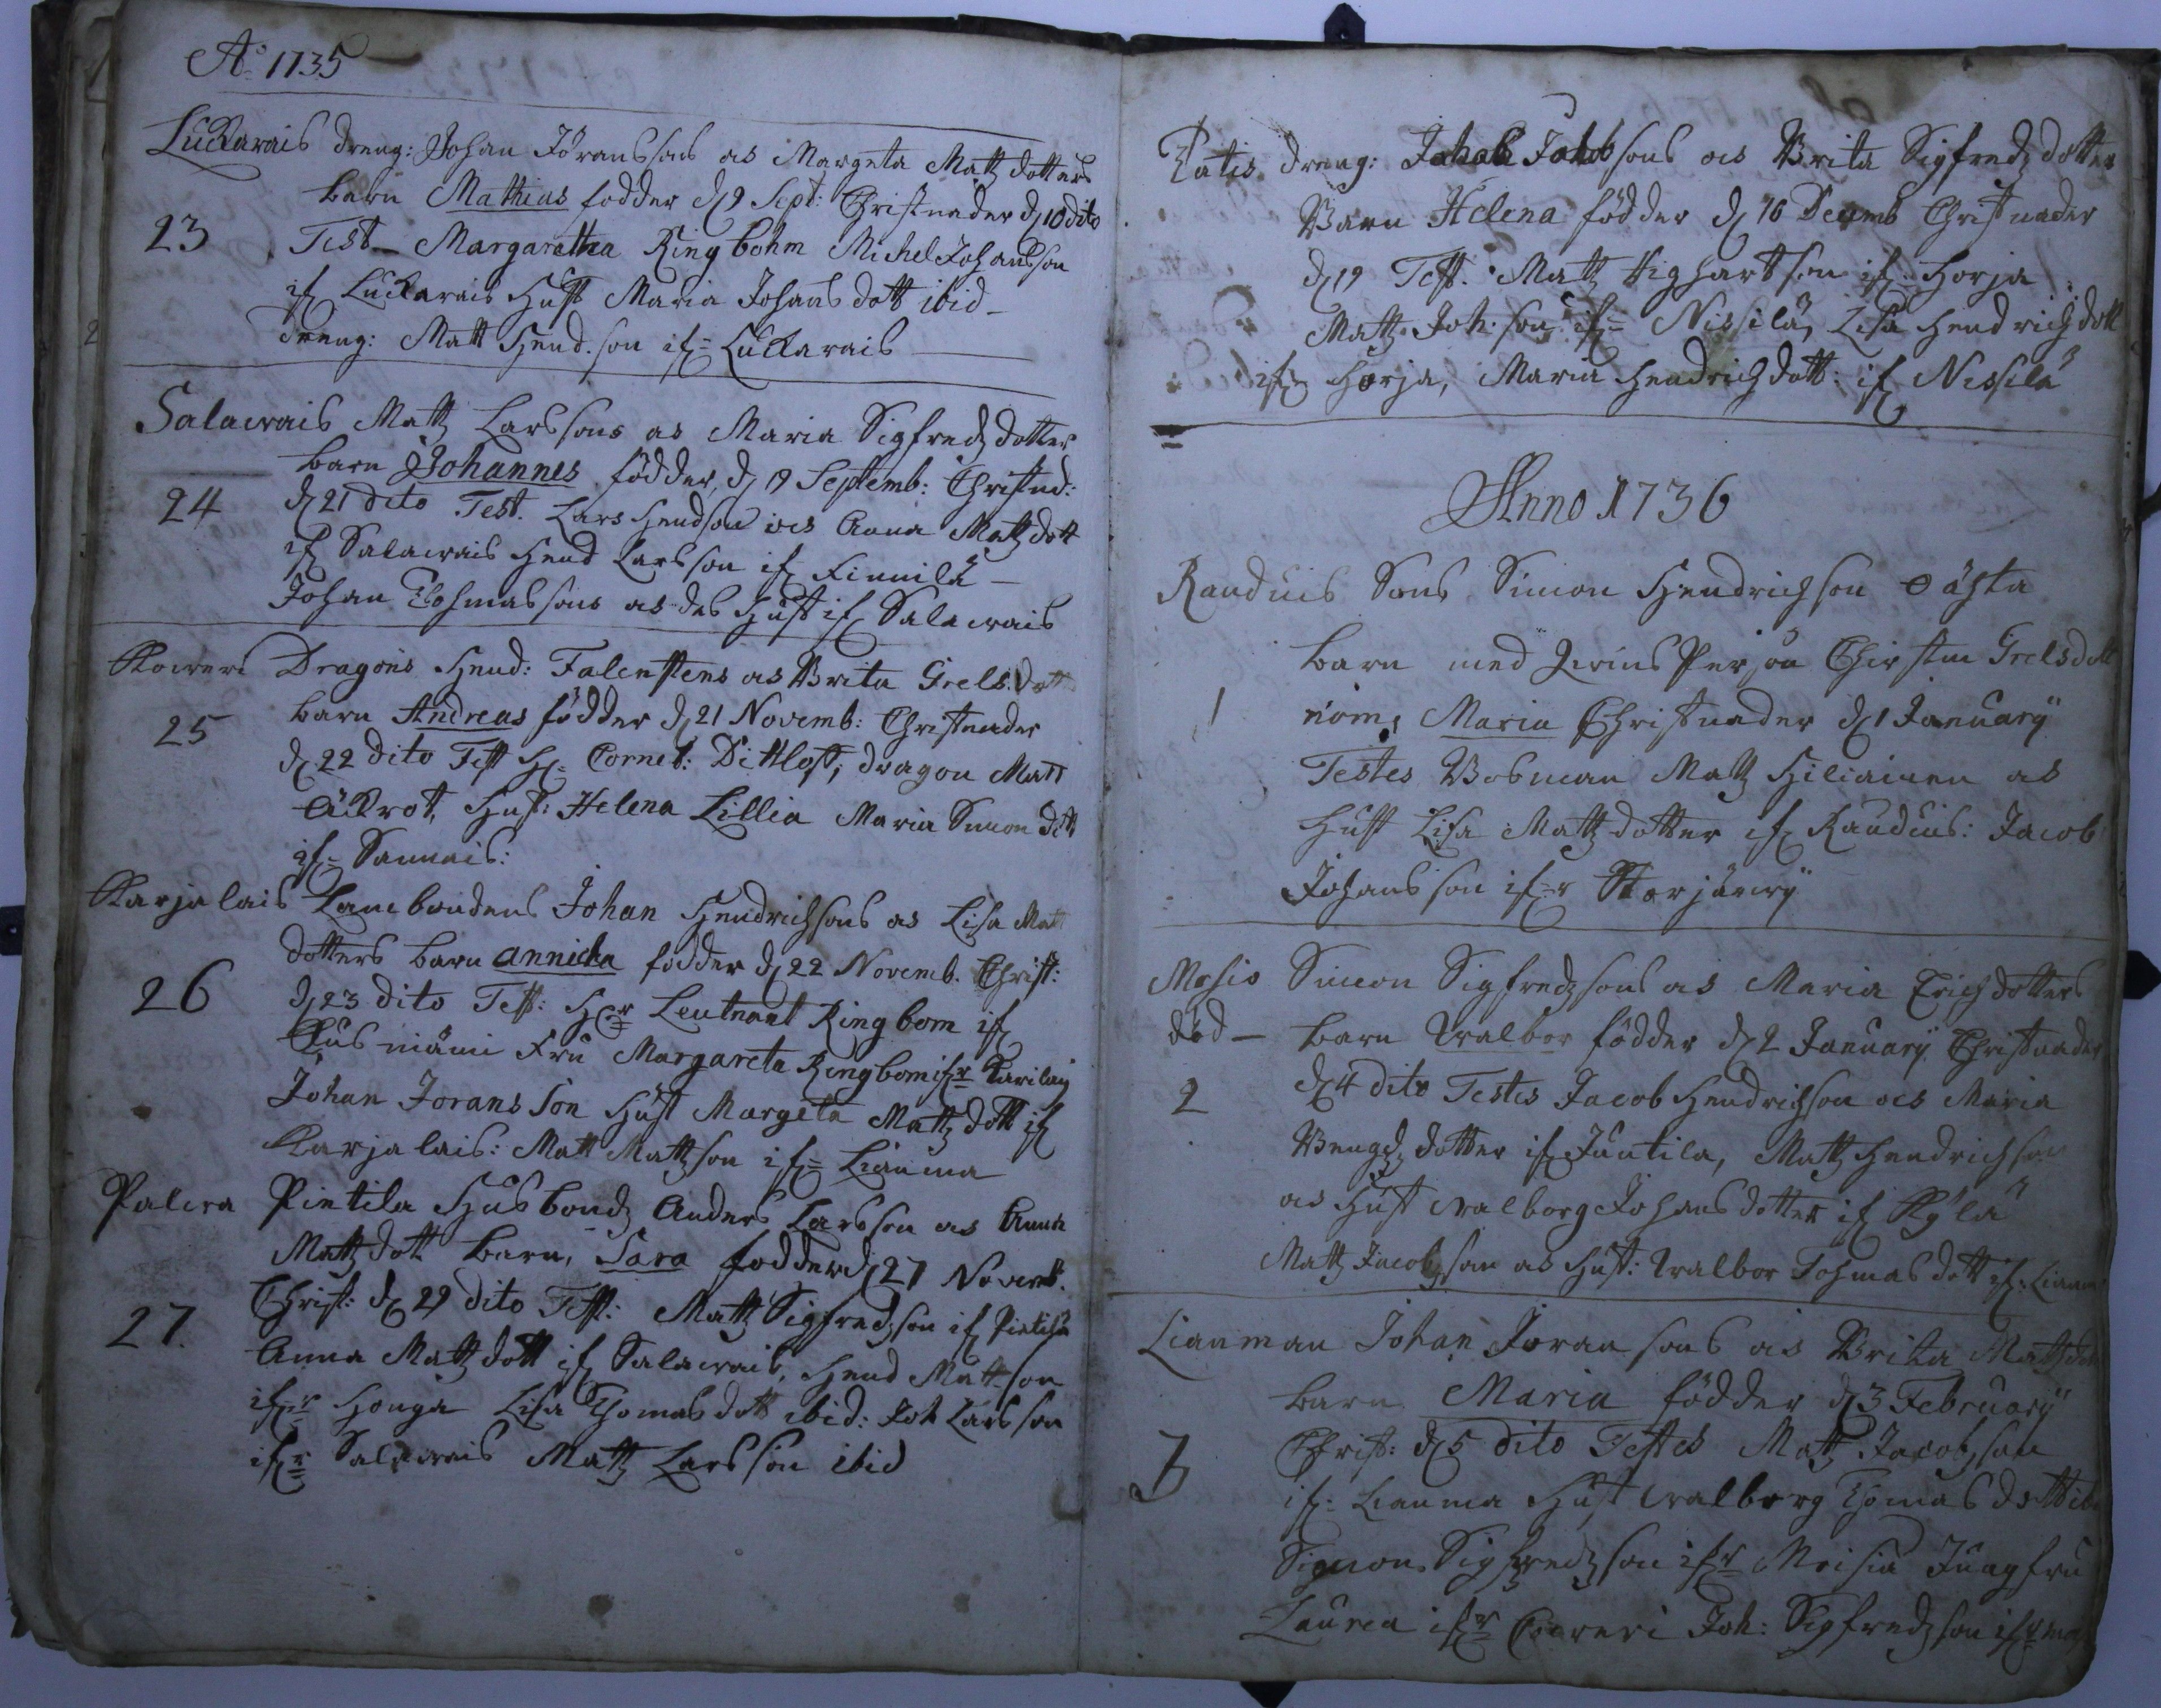 Ao 1735
Luckarais dreng: Johan Göranssons as Margeta Matz dotters
barn Mathias fodder d 9 Sept: Christnades d 10 dito
23 Test- Margaretha Ringbohm Michel Johansson
if Luckarais Hust Maria Johans dott ibid-
dreng: Matt Hend. son if= Luckarais
Salawais Matz Larssons as Maria Sigfredz dotters
barn Johannes födder, d 19 Septemb: Christnd:
24 d 21 dito Test. Lars Hendson as Anna Matz dott
if Salawais Hend Larsson if Finnilä-
Johan Thomassons as des Hust if Salawais
Koiweri Dragons Hend: Falenstens as Brita Grels. Dott
25 barn Andreas födder d 21 Novemb: Christnades
d 22 dito Test H= Cornet: Ditlost, dragon Matt
Åckrot, Hust: Helena Lillia Maria Simon dott
if= Sannais:
Karjalais Lanbondens Johan Hendrichsons as Lisa Matt
dotters barn annicka fodder d 22 Novemb. Christ:
26 d 23 dito Test: Hr Leutnant Ringbom if
Kus mämi Fru Margareta Ringbom ifr Karilaij
Johan Jorans son Hust Margeta Matz dott if
Karjalais: Matt Mattson if= Liauma
Palcra Pietila Husbondz Anders Larsson as Anna
Matz dott barn, Sara fodder d 27 Novemb.
27. Christ: d 29 dito Test: Matz Sigfredzson if Pietilä
Anna Matz dott if Salawais, Hend Mattson
ifr Honga Lisa Thomas dott ibid: Joh Larsson
ifr Salawais Matz Larsson ibid
Ratis dreng: Jahob Jahobsons as Brita Sigfredz dotters
Barn Helena födder d 16 Decemb Christnades
d 19 Test. Matz Highartson if Horja
Matz Joh: son if= Nissilä, Lisa Hendrich dott
if= Horja, Maria Hendrich dott: if Nissilä
Anno 1736
Randuis Sons Simon Hendrichson oächta
barn med Qwins Person Chirstin Grelsdott
1 nom, Maria Christnades d 1 January
Testes Bosman Matz Hiliainen as
Hust Lisa Matz dotter if Randuis: Jacob
Johansson if=r Storjärwy
Moisio Simon Sigfredzsons as Maria Erichdotters
död- barn Walbor födder d 2 January Christnades
2 d 4 dito Testes Jacob Hendrichson as Maria
Bengdz dotter if Juntila, Matz Hendrichson
as Hust walborg Johansdotter if Kylä
Matz Jacobsson as Hust: Walbor Tohmas dott if: Liaum
Lianman Johan Joran sons as Brita Matz dott
barn Maria födder d 3 February
3 Christ: d 5 dito Testes Matz Jacobson
if: Liauma Hust walborg Thomas dott ib
Simon Sigfredzson ifr Moisia Jungfru
Laurea ifr Coiweri Joh: Sigfredzson ifr moi